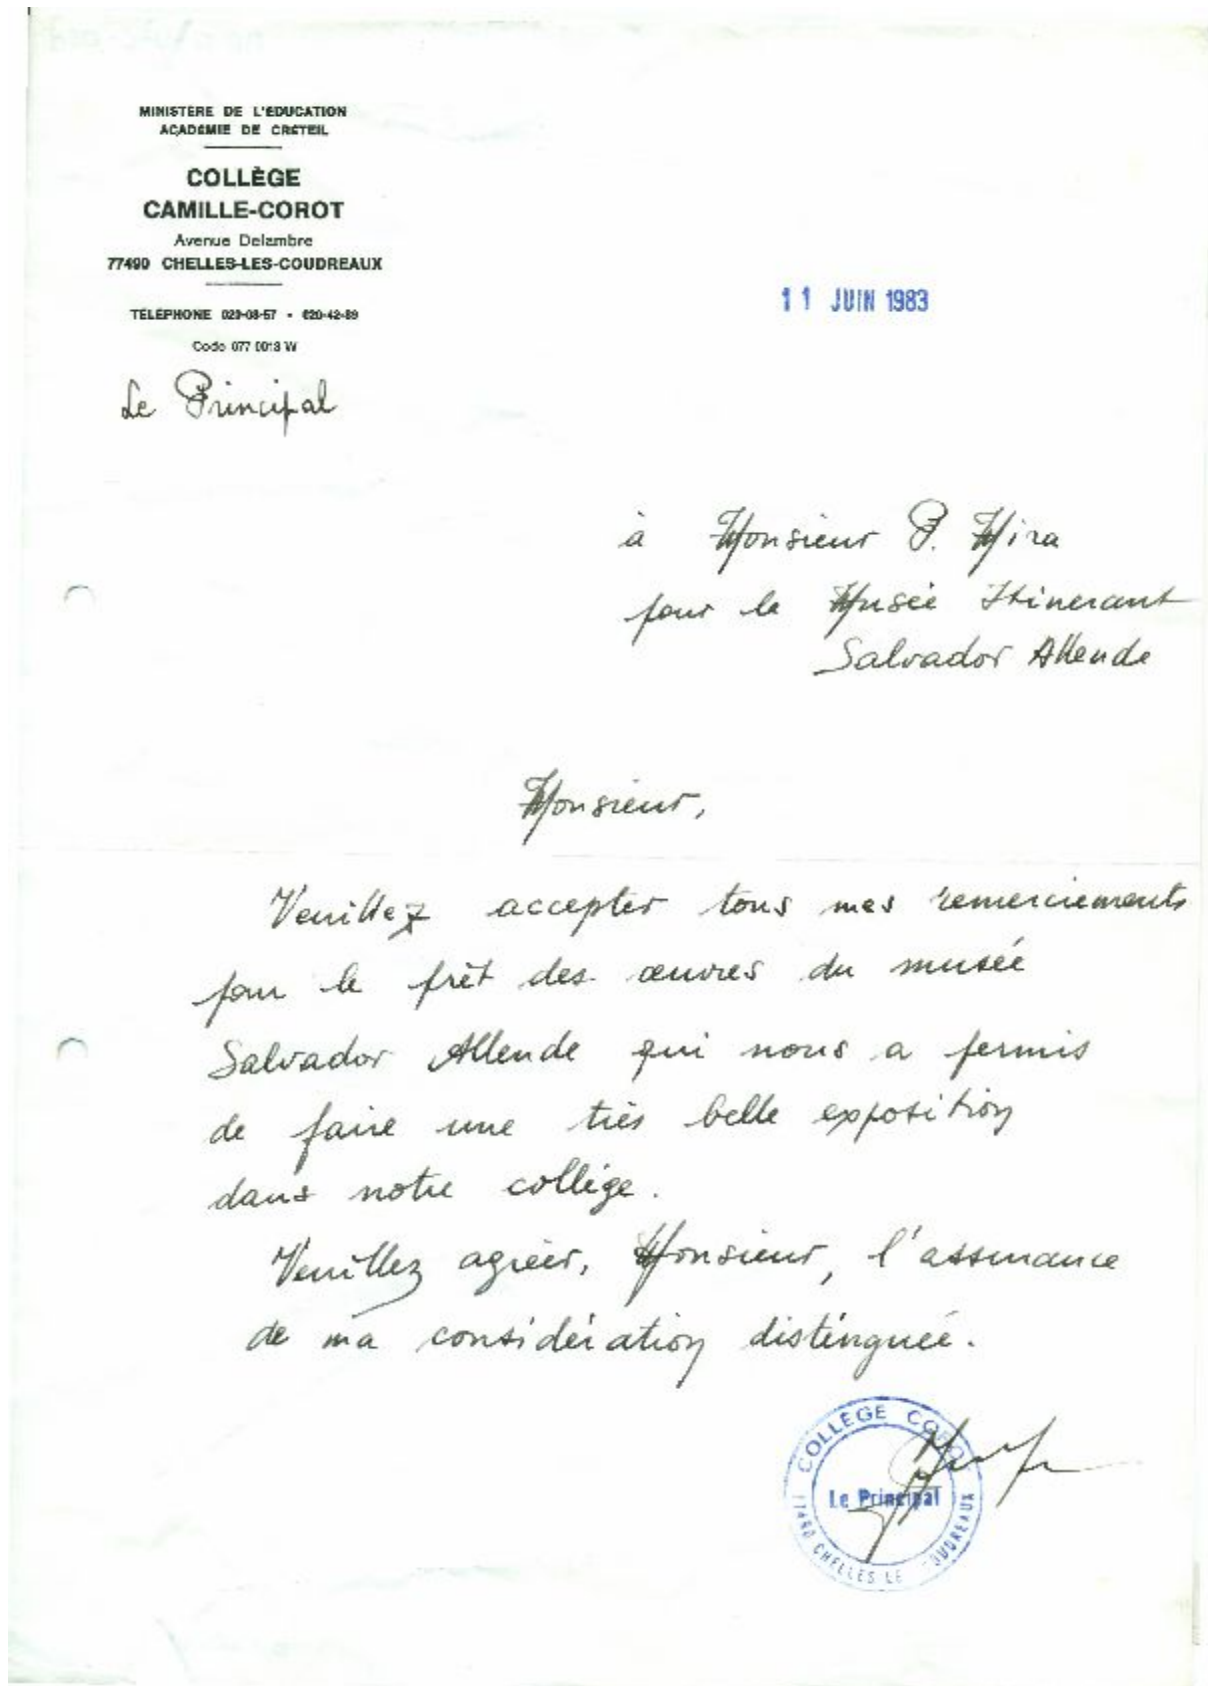 MINISTERE DE L'EDUCATION
ACADEMIE DE CRETEIL
COLLÈGE
CAMILLE-COROT
Avenue Delambre
77490 CHELLES-LES-COUDREAUX
TELEPHONE 020-08-57 - 020-42-89
Code 077 0018 W
Le Principal
11 JUIN 1983
à Monsieur P. Mira
pour le Musée Itinerant
Salvador Allende
Monsieur,
Veuillez accepter tous mes remerciements
pour le prêt des œuvres du musée
Salvador Allende qui nous a permis
de faire une très belle exposition
dans notre collège.
Veuillez agréer, Monsieur, l'assurance
de ma considération distinguée.
COLLÈGE COROT
Le Principal
77490 CHELLES LE OUDREAUX